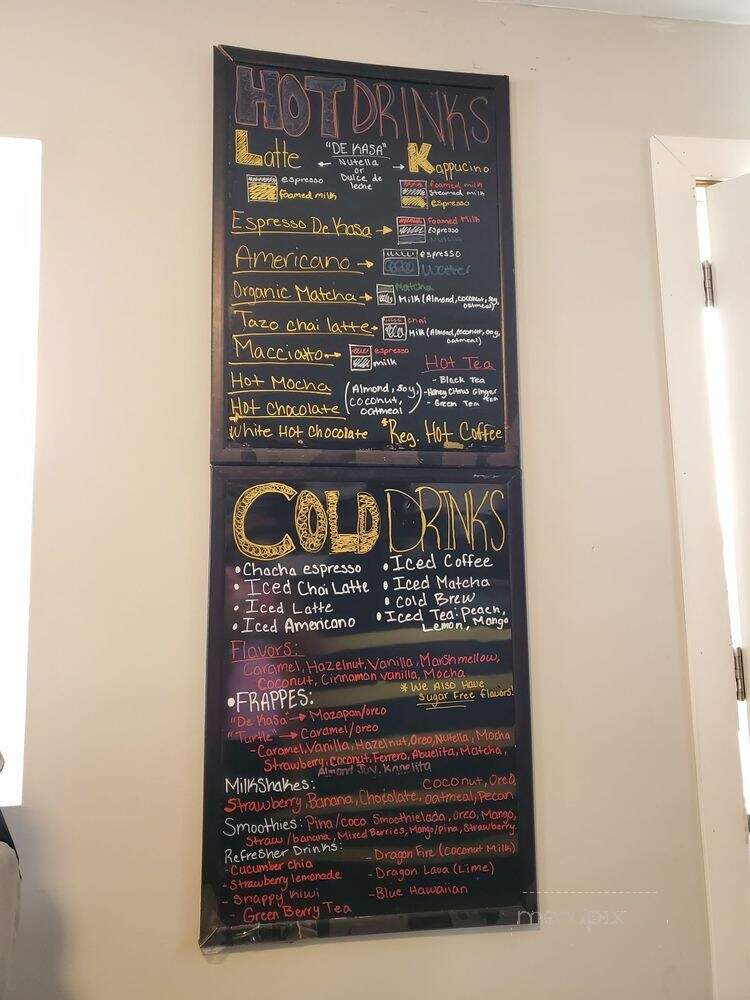 HOT DRINKS
Latte
"DE KASA"
Nutella
or
Dulce de
leche
Kappucino
espresso
foamed milk
foamed milk
steamed milk
espresso
Espresso De Kasa
foamed Milk
Espresso
Americano
espresso
Water
Organic Matcha
Matcha
Milk (Almond, coconut, soy,
oatmeal)
Tazo chai latte
chai
Milk (Almond, coconut, soy,
oatmeal)
Macciato
espresso
milk
Hot Mocha
Hot chocolate
(Almond, soy,
coconut,
oatmeal)
Hot Tea
- Black Tea
- Honey Citrus Ginger
tea
- Green Tea
White Hot Chocolate
*Reg. Hot Coffee
COLD DRINKS
• Chacha espresso
• Iced Chai Latte
• Iced Latte
• Iced Americano
• Iced Coffee
• Iced Matcha
• Cold Brew
• Iced Tea: Peach,
Lemon, Mango
Flavors:
Caramel, Hazelnut, Vanilla, Marshmellow,
Coconut, Cinnamon Vanilla, Mocha
* We Also Have
Sugar Free flavors!
• FRAPPES:
"De Kasa" → Mazapan/oreo
"Turtle" → Caramel/oreo
- Caramel, Vanilla, Hazelnut, Oreo, Nutella, Mocha
Strawberry, Coconut, Ferrero, Abuelita, Matcha,
Almond Joy, Kanelita
MilkShakes:
Coconut, Oreo,
Strawberry, Banana, Chocolate, oatmeal, Pecan
Smoothies: Pina/coco Smoothielada, Oreo, Mango,
Straw/banana, Mixed Berries, Mango/pina, Strawberry.
Refresher Drinks:
- Cucumber chia
- Strawberry lemonade
- Snappy Kiwi
- Green Berry Tea
- Dragon Fire (Coconut Milk)
- Dragon Lava (Lime)
- Blue Hawaiian
menupix